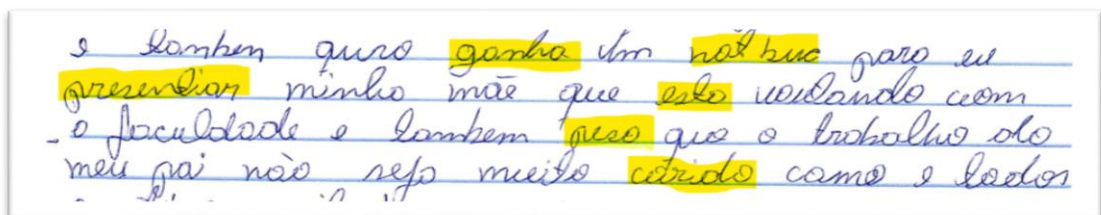 e tanben quro ganha um nòt buc para eu
presentiar minha mãe que esta voutando com
a faculdade e tambem peso que o trabalho do
meu pai não seja muito corido como e todos